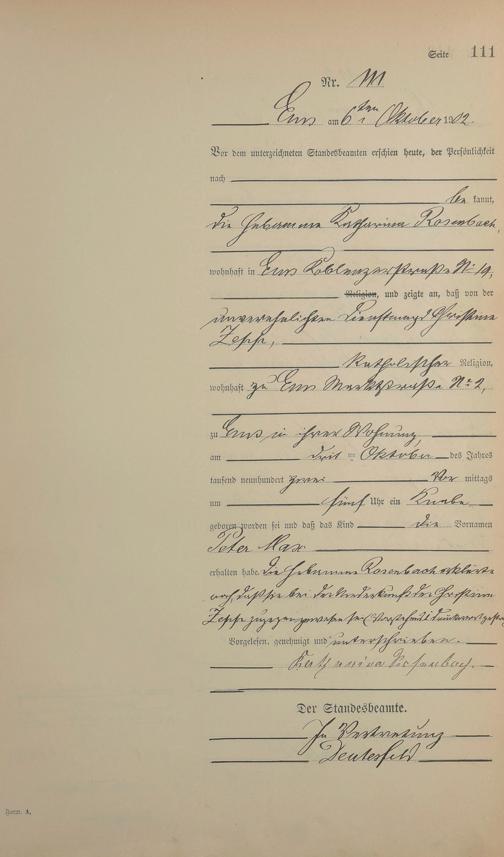 Seite 111
Nr. 111
Ems am 6ten Oktober 1902.
Vor dem unterzeichneten Standesbeamten erschien heute, der Persönlichkeit
nach
be kannt,
die Hebamme Katharina Rosenbach,
wohnhaft in Ems Koblenzerstraße No 19,
Religion, und zeigte an, daß von der
unverehelichten Dienstmagd Christine
Zeppe,
katholischer Religion,
wohnhaft zu Ems Marktstraße No 2,
zu Ems in ihrer Wohnung
am drit= Oktober des Jahres
tausend neunhundert zwei Vor mittags
um fünf Uhr ein Knabe
geboren worden sei und daß das Kind die Vornamen
Peter Max
erhalten habe. Die Hebamme Rosenbach erklärte
noch, daß sie bei der Niederkunft der Christine
Zeppe zugegen gewesen sei.
Vorgelesen, genehmigt und unterschrieben.
Katharina Rosenbach.
Der Standesbeamte.
In Vertretung
Form. A.